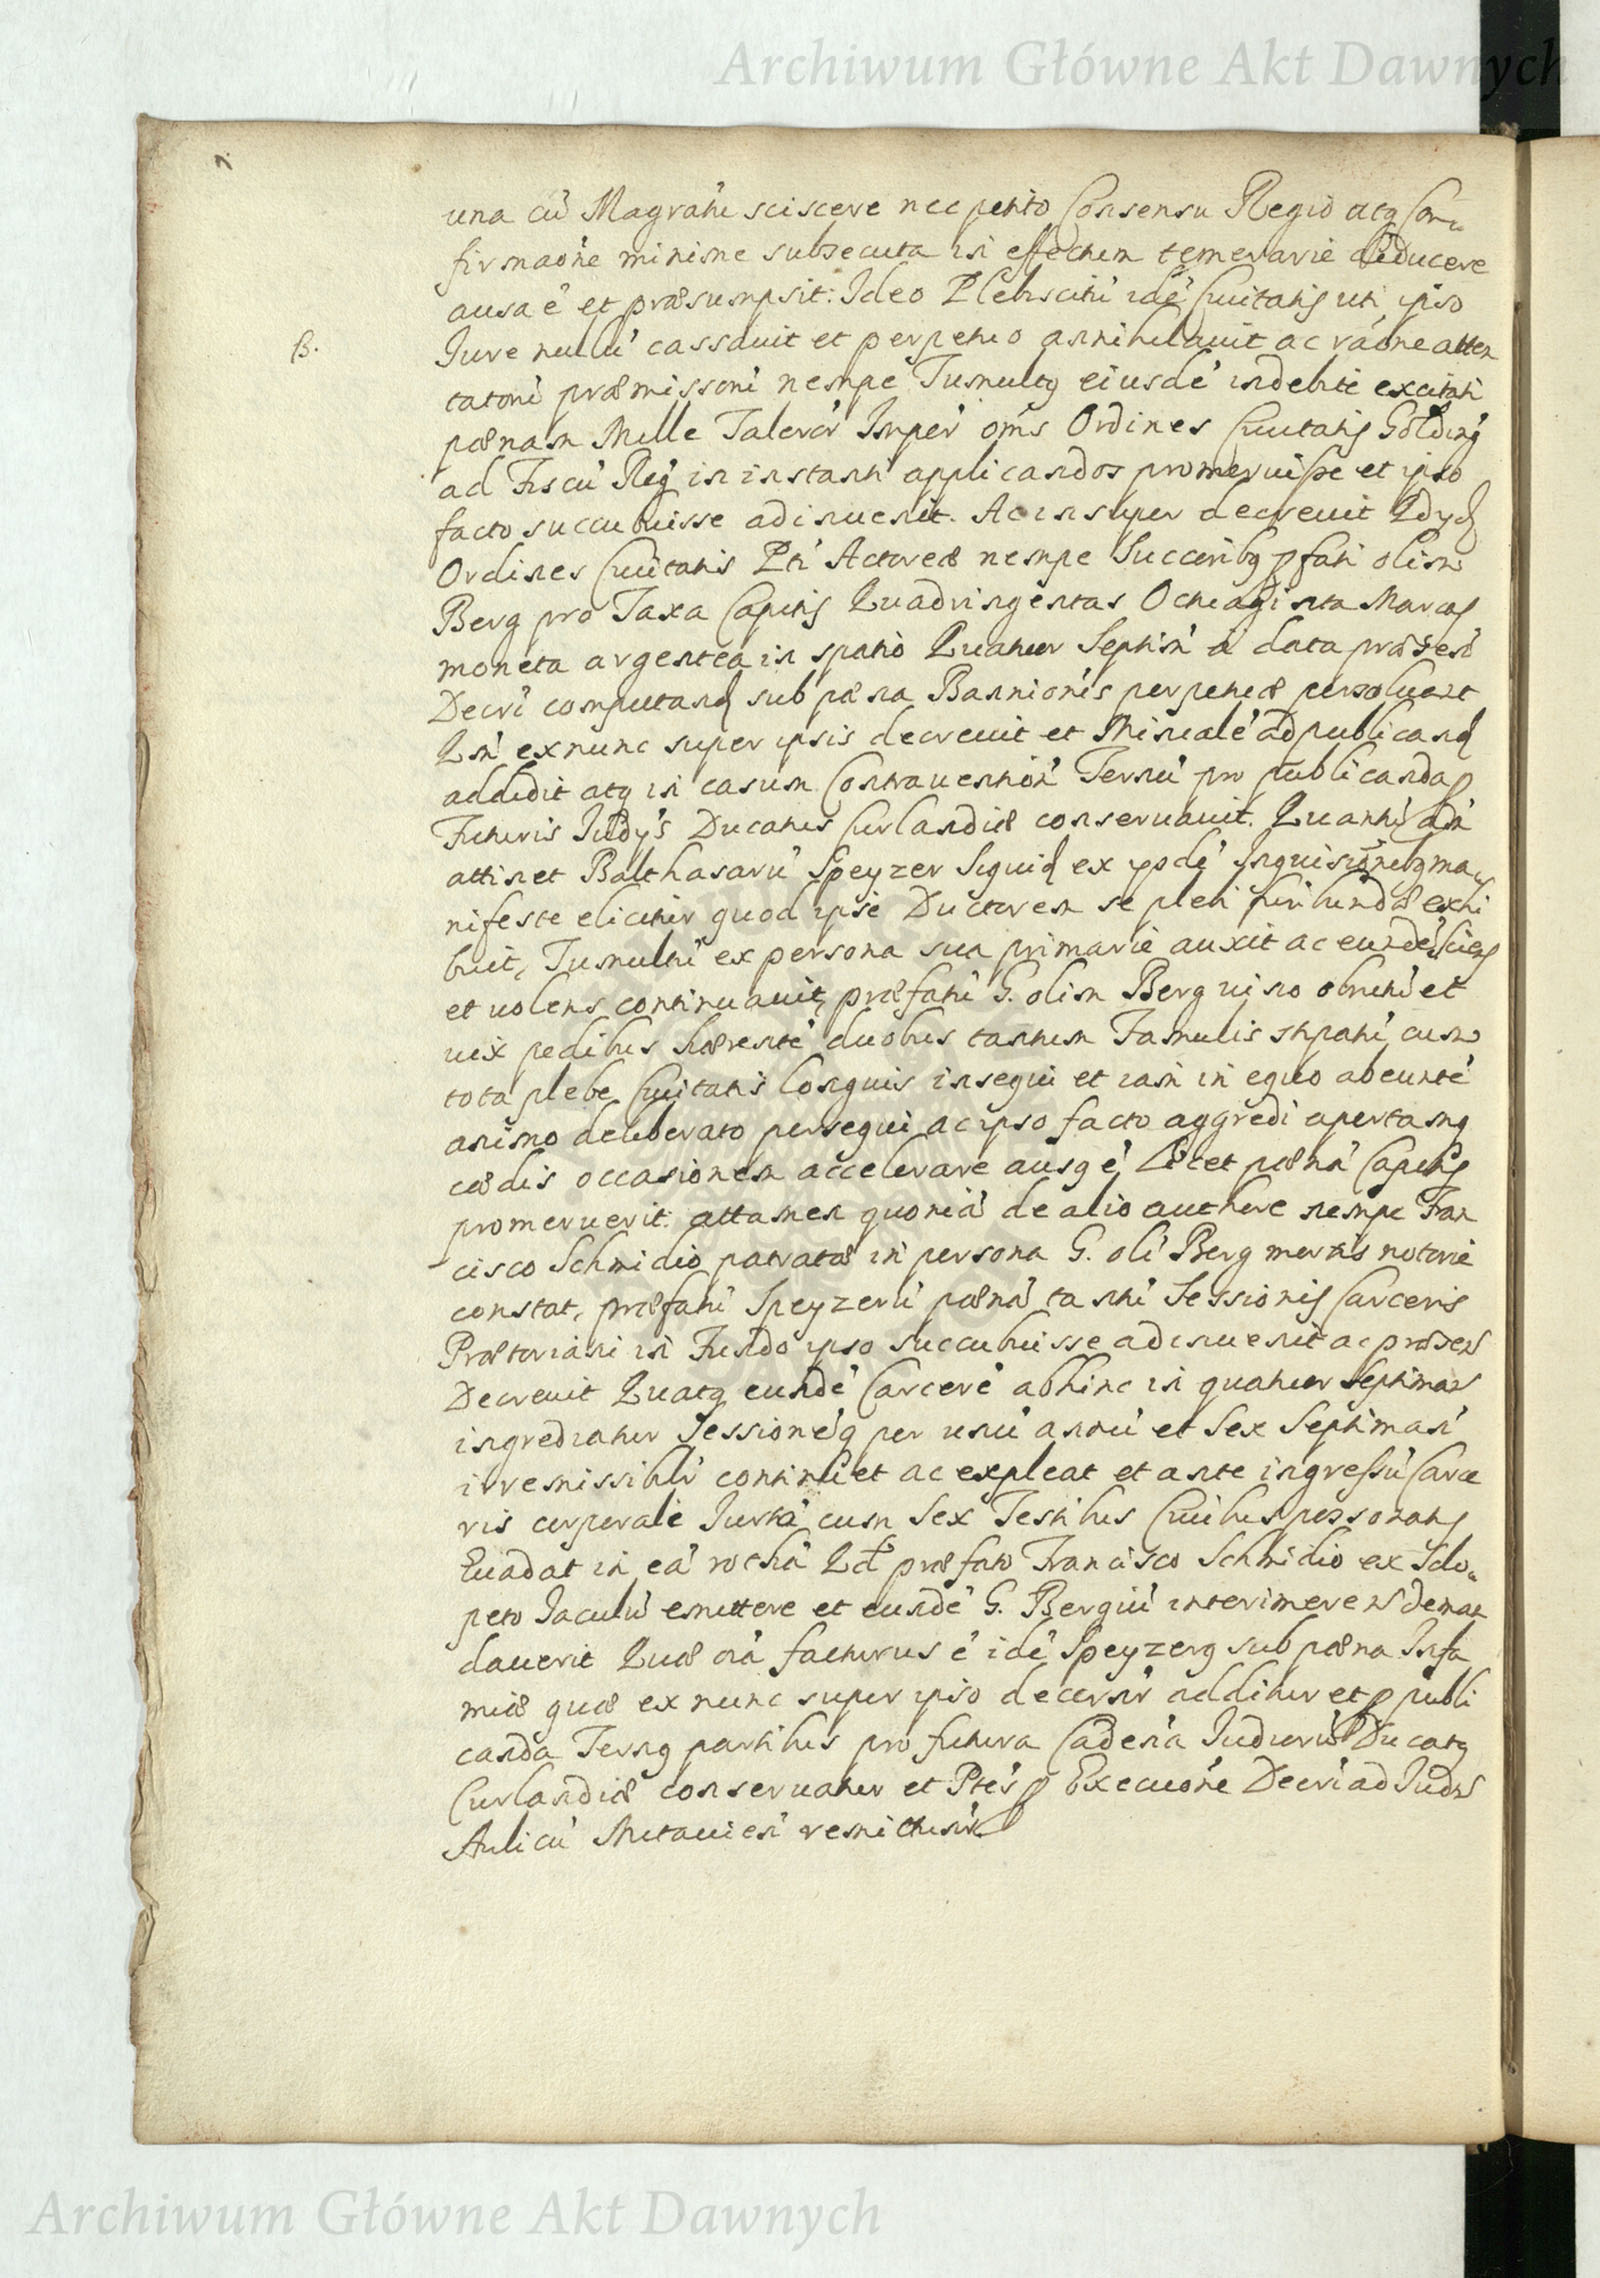 Archiwum Główne Akt Dawnych
una cu̇ Magrat̄u sciscere nec petito Consensu Regio atq Con-
firmaōne minime subsecuta in effectum temerarie deducere
ausa ē et præsumpsit: Ideo Plebiscitū idē Civitatis uti ipso
B.
Jure nullū cassavit et perpetuo annihilavit ac raōne atten
tatorū præmissorū nempe Tumultq eiusdē indebite excitati
pœnam Mille Talerōr Imper oms Ordines Civitatis Golding
ad Fiscū Reg in instanti applicandos promeruisse et ipso
facto succubuisse adinvenit. Ac insuper decrevit Qdq
Ordines Civitatis Pti Actoreæ nempe Succoribq pfati olim
Berg pro Taxa Capitis Quadringentas Octuaginta Marcas
moneta argentea in spatio Quatuor Septim a data præsen
Decri computand sub pœna Bannionis perpetuæ persolvant
Qm ex nunc super ipsis decrevit et Minralē ad publicand
addidit atq in casum Contravention Termū pro publicanda
Futuris Judys Ducatus Curlandiæ conservavit. Quantū adm
attinet Balthasarū Speyzer Siquid ex ypdē Inquisitionibq ma-
nifeste elicitur quod ipse Ductorem se plebi furibundæ exhi
buit, Tumultū ex persona sua primarie auxit ac eundē sciens
et volens continuavit, præfatū G. olim Berg vino obrutū et
vix pedibus hærentē duobus tantum Famulis stipatū cum
tota plebe Civitatis longius insequi et iam in equo abeuntē
animo deliberato persequi ac ipso facto aggredi apertamq
cædis occasionem accelerare ausq ē, Licet pœnā Capitis
promeruerit. attamen quoniā de alio authore nempe Fran
cisco Schmidio patratæ in persona G. oli Berg mortis notorie
constat, præfatū Speyzerū pœnā tantū Sessionis Carceris
Prætoriani in Fundo ipso succubuisse adinvenit ac præsen
Decrevit Quatq eundē Carcerē abhinc in quatuor Septiman
ingrediatur Sessionēq per unū annū et Sex Septiman
irremissibilr continuet ac expleat et ante ingressū Carce
ris corporale Jurtā cum Sex Testibus Civibus possonatis
Evadat in eā rothā Qd præfato Francisco Schmidio ex Sclo-
peto Jaculū emittere et eundē G. Bergiū interimere n deman
daverit Quæ oīa facturus ē idē Speyzerq sub pœna Infa
miæ quæ ex nunc super ipso decernr additur et p publi
canda Termq partibus pro futura Cadenā Judiorū Ducatq
Curlandiæ conservatur et Ptes p Execuōne Decri ad Judm
Aulicū Mitavien remittunr
Archiwum Główne Akt Dawnych